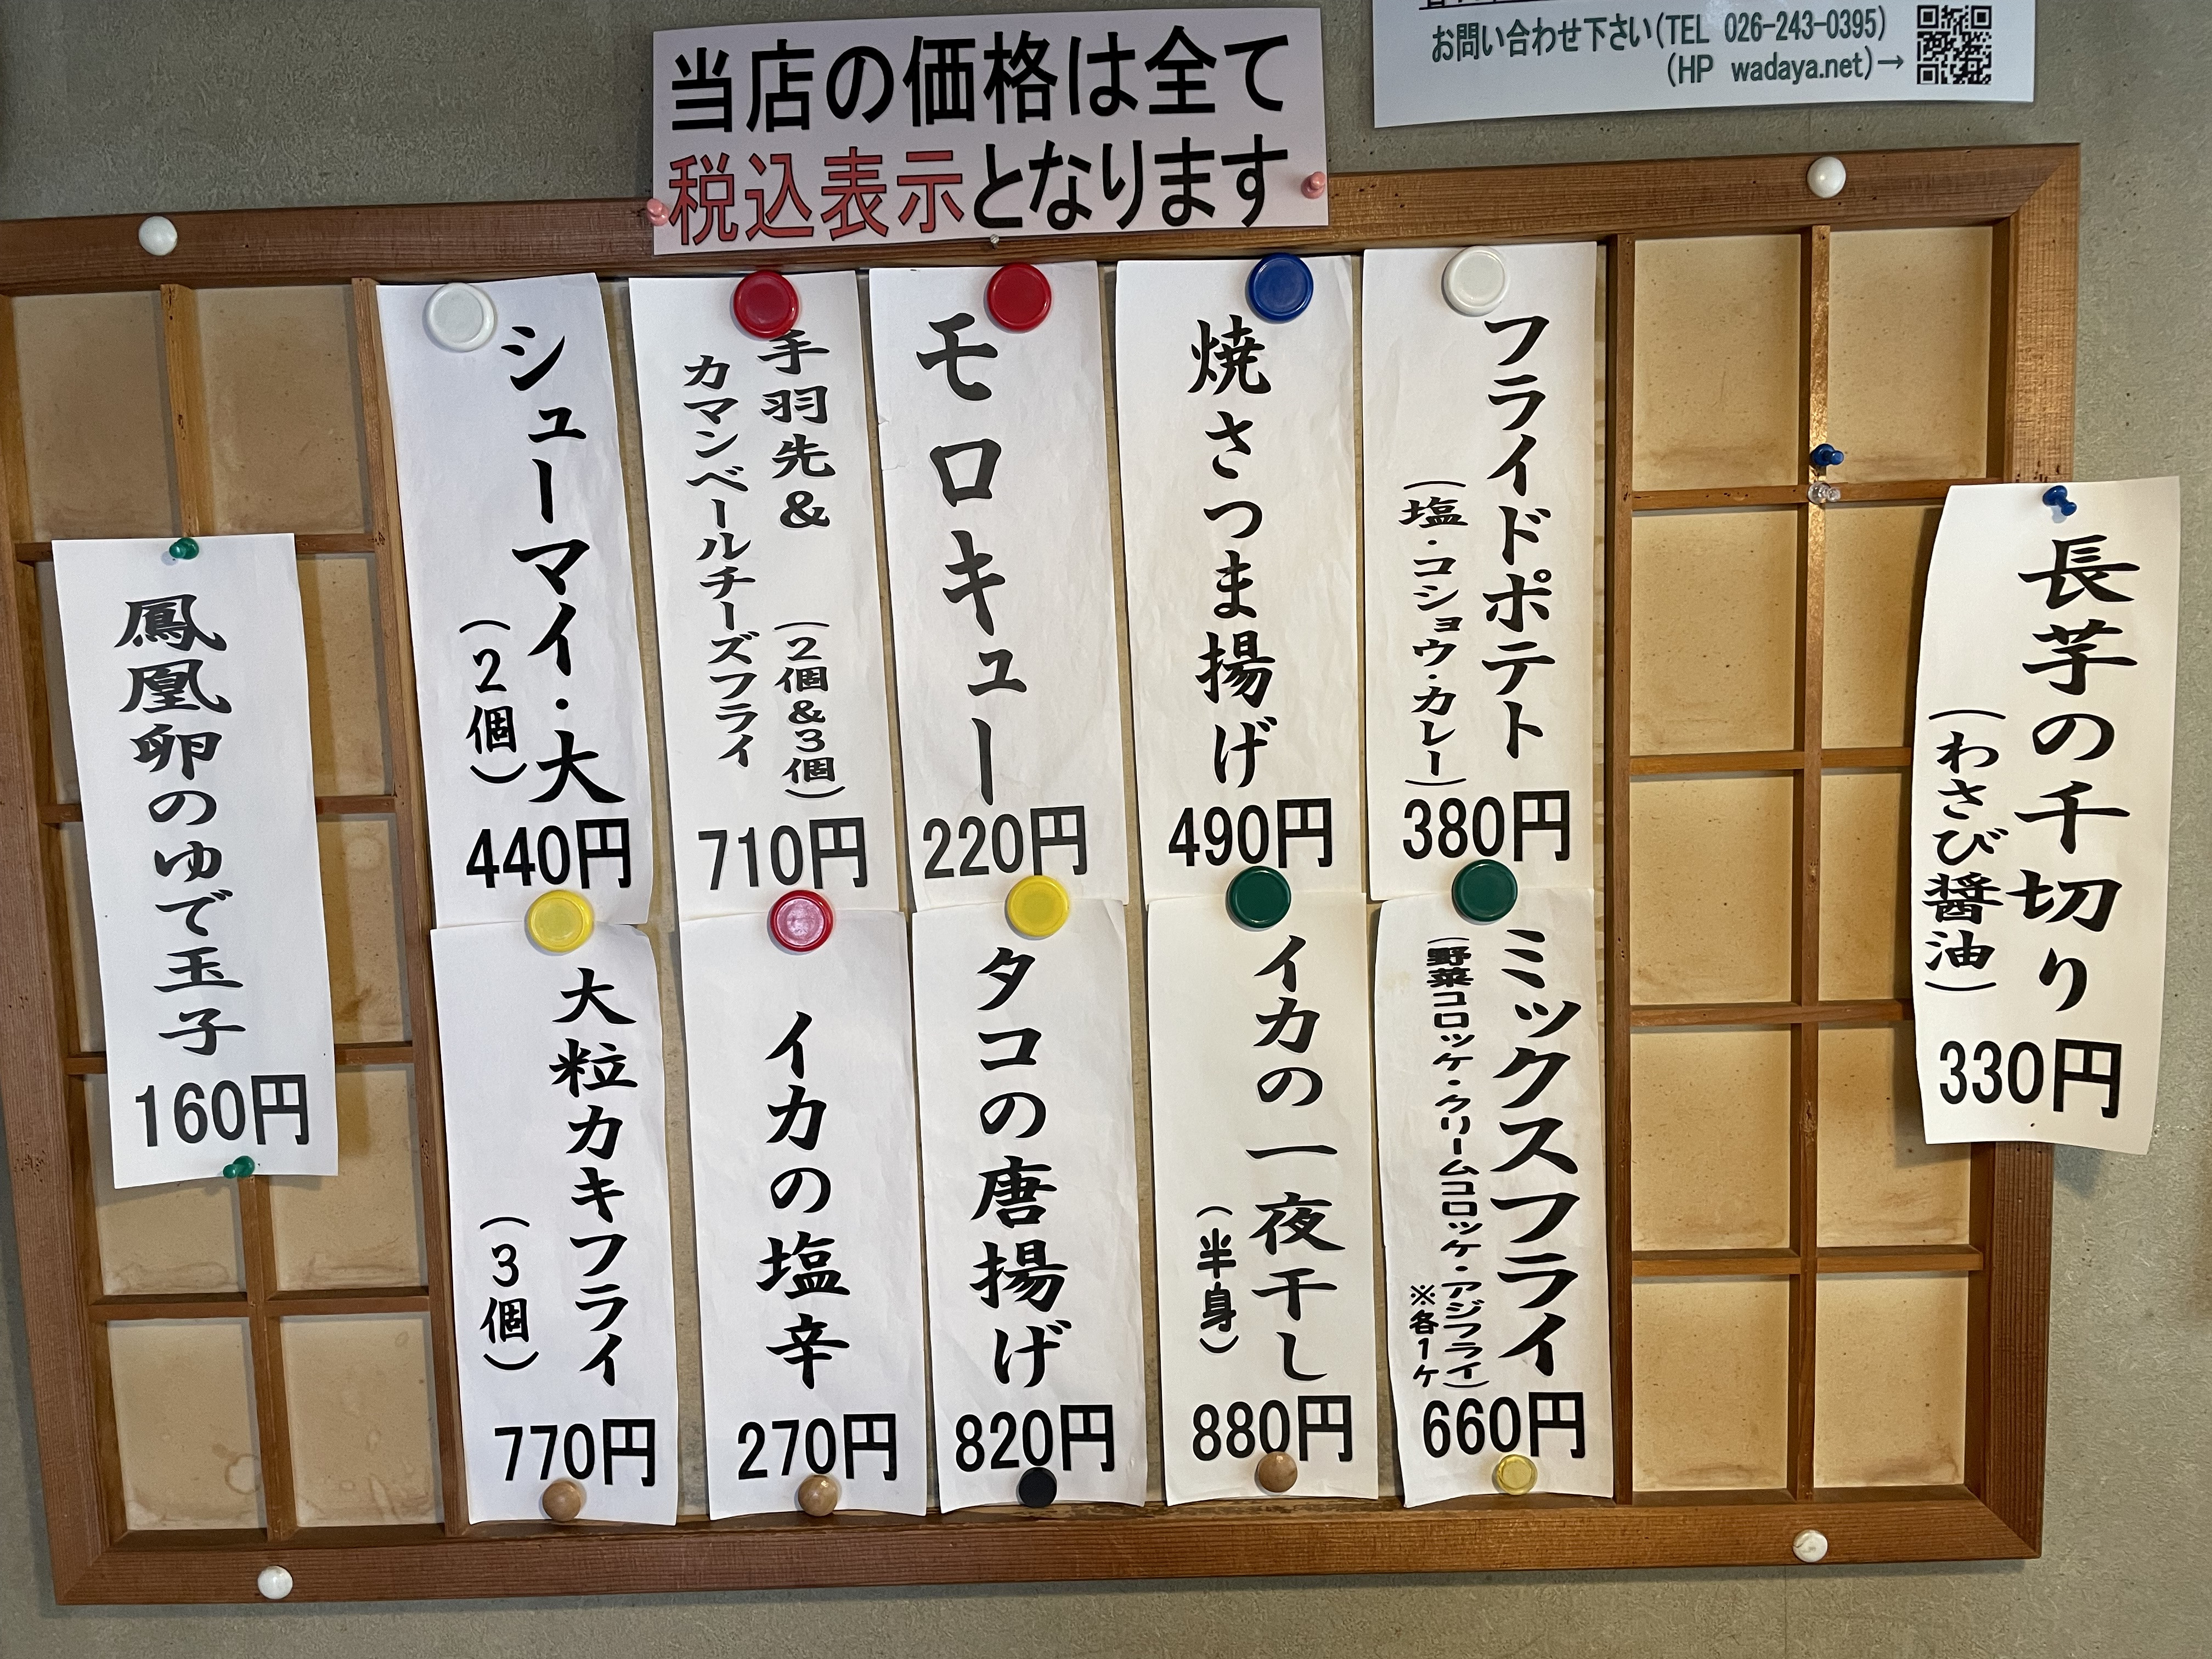 お問い合わせ下さい(TEL 026-243-0395)
(HP wadaya.net)→
当店の価格は全て
税込表示となります
長芋の千切り
(わさび醤油)
330円
フライドポテト
(塩・コショウ・カレー)
380円
焼さつま揚げ
490円
モロキュー
220円
手羽先& (2個&3個)
カマンベールチーズフライ
710円
シューマイ・大
(2個)
440円
ミックスフライ
(野菜コロッケ・クリームコロッケ・アジフライ)
※各1ヶ
660円
イカの一夜干し
(半身)
880円
タコの唐揚げ
820円
イカの塩辛
270円
大粒カキフライ
(3個)
770円
鳳凰卵のゆで玉子
160円